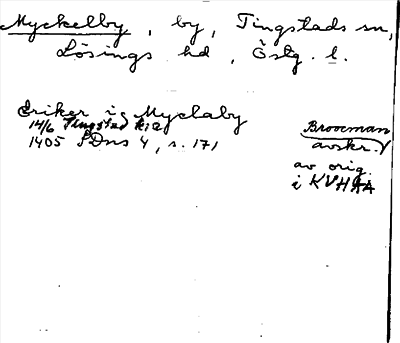 Myckelby, by, Tingstads sn,
Lösings hd, Östg. l.
Eriker i Myclaby
14/6 Tingstad k:a
1405 SDns 4, s. 171
Brooeman
avskr.
av orig.
i KVHAA